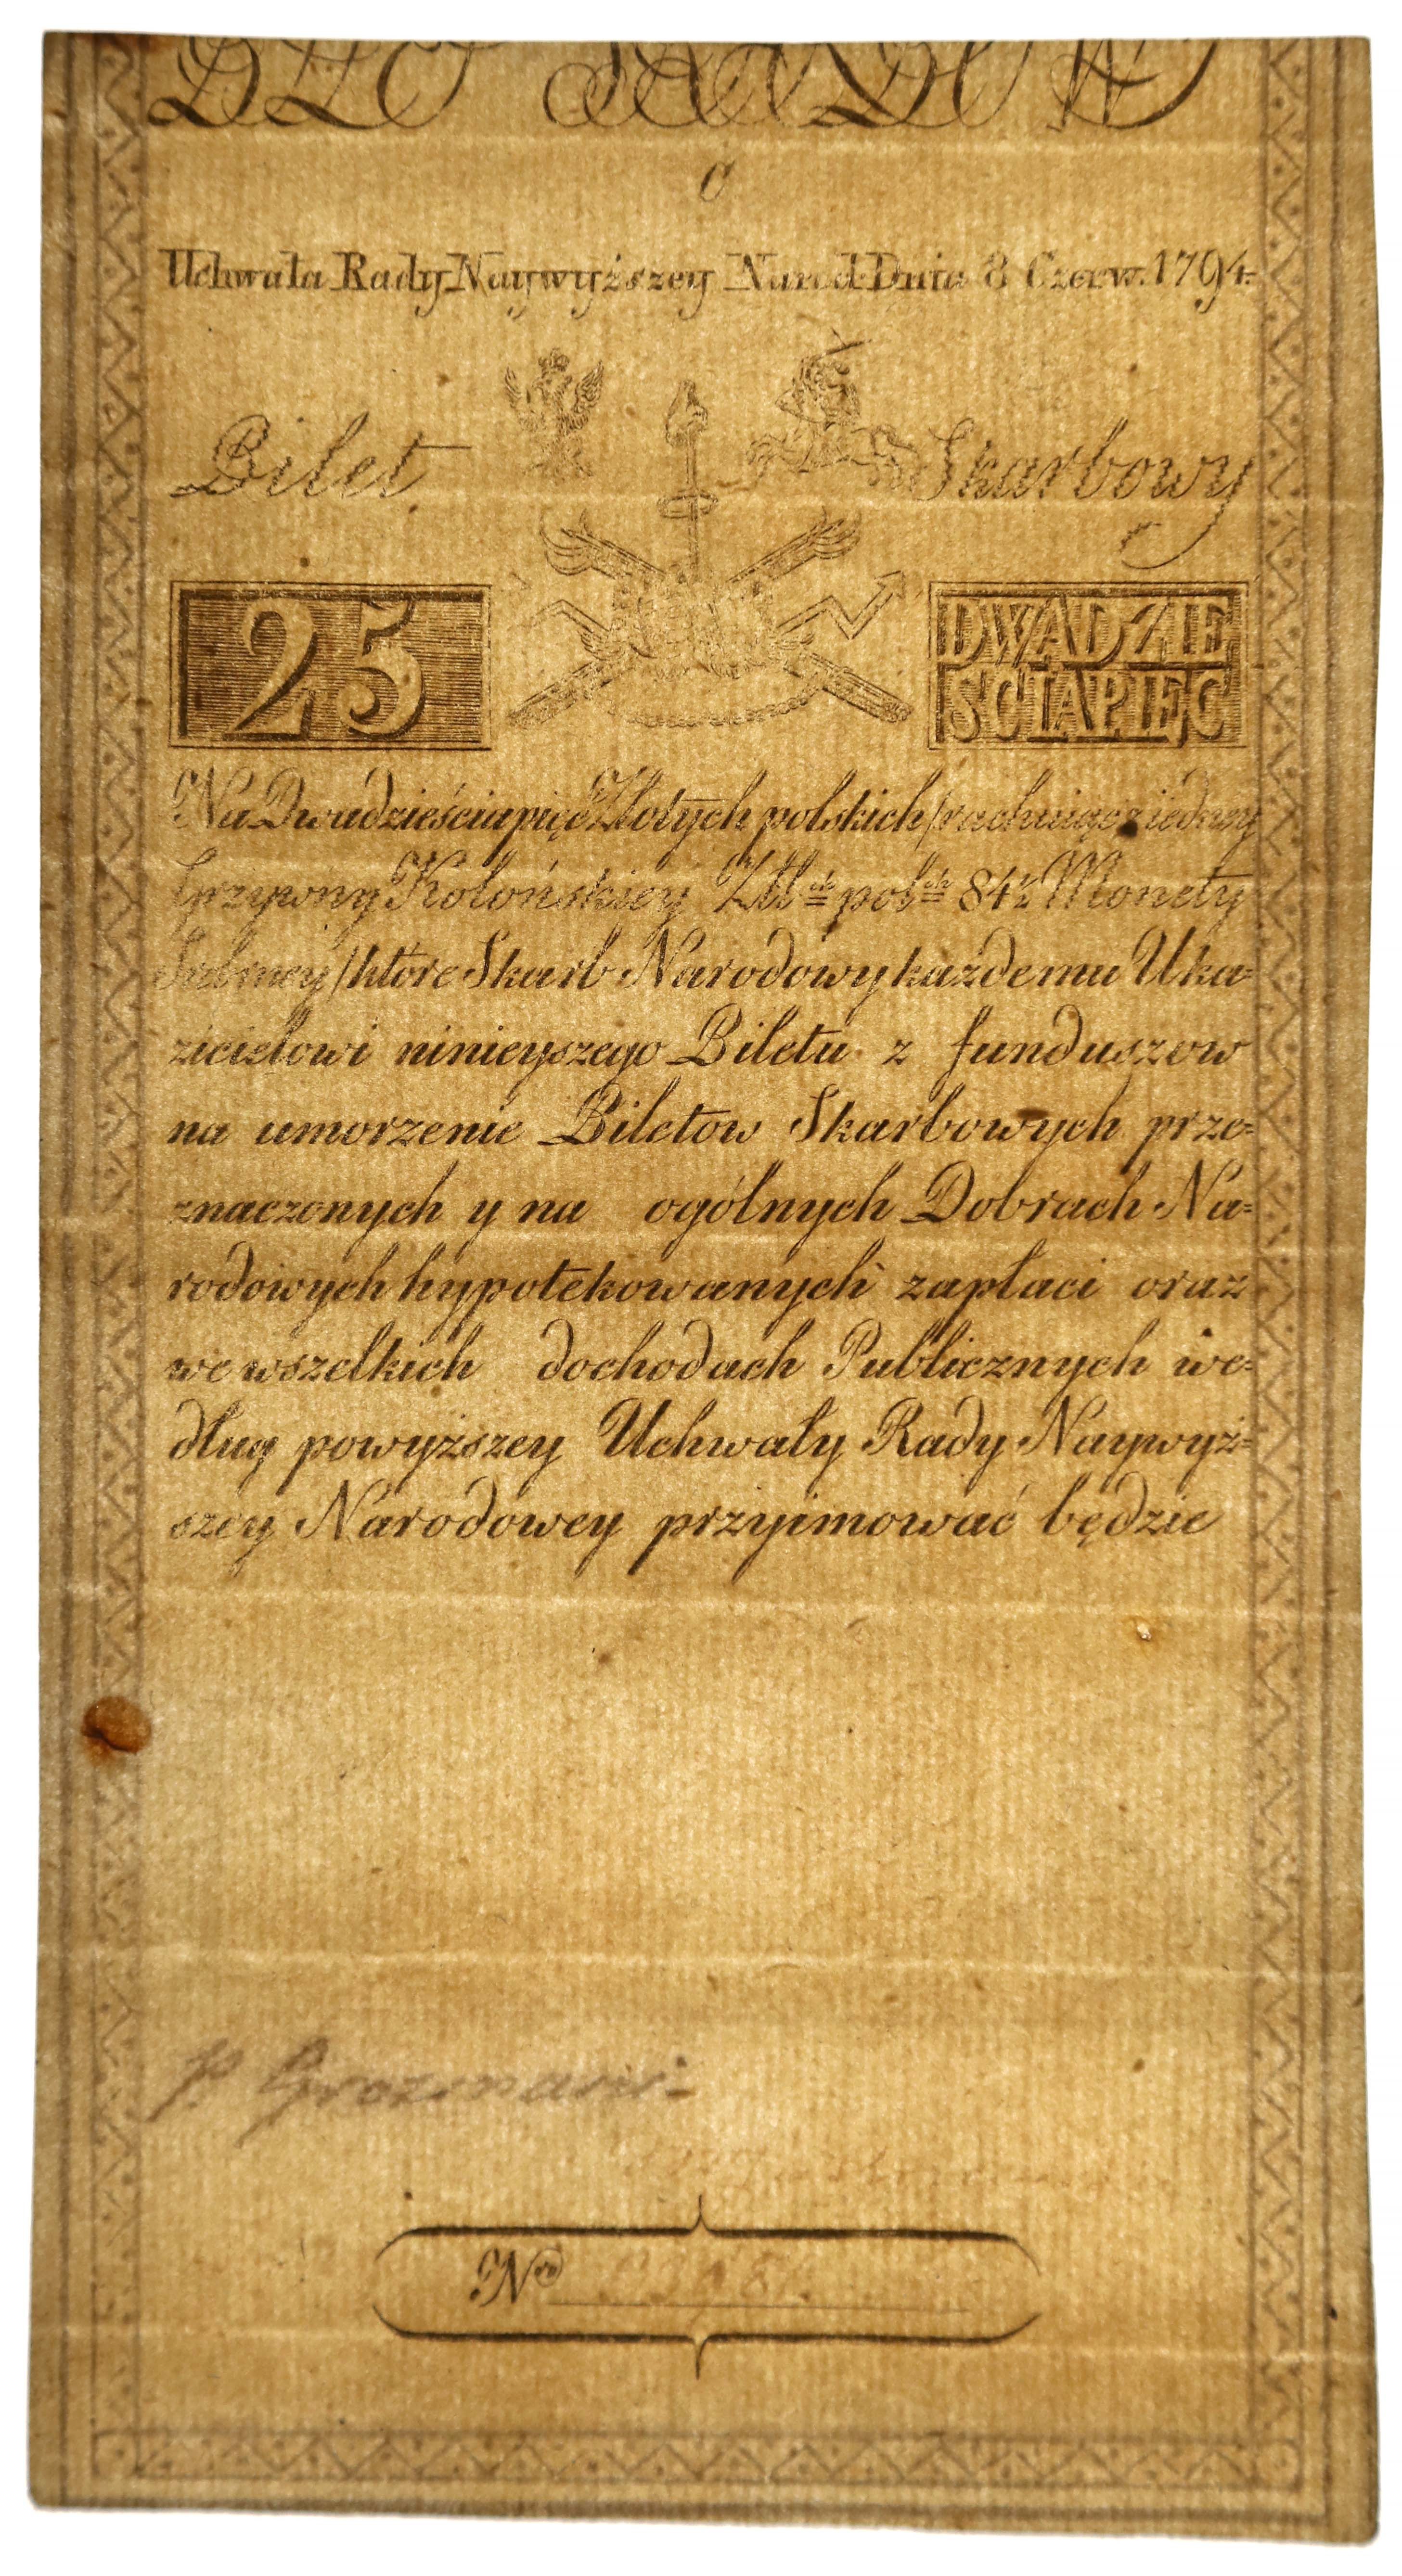 C
Uchwała Rady Naywyższey Narod: Dnia 8 Czerw. 1794.
Bilet Skarbowy
25
DWADZIE
SCIAPIĘC
Na Dwadzieścia pięć Złotych polskich /rachuiąc z iedney
Grzywny Kolońskiey Złł ch pol ch 84½ Monety
Srebrney/ które Skarb Narodowy każdemu Uka=
zicielowi ninieyszego Biletu z funduszow
na umorzenie Biletow Skarbowych prze=
znaczonych y na ogólnych Dobrach Na=
rodowych hypotekowanych zapłaci oraz
we wszelkich dochodach Publicznych we=
dług powyższey Uchwały Rady Naywyż=
szey Narodowey przyjmować będzie
P Grozmani
Nro